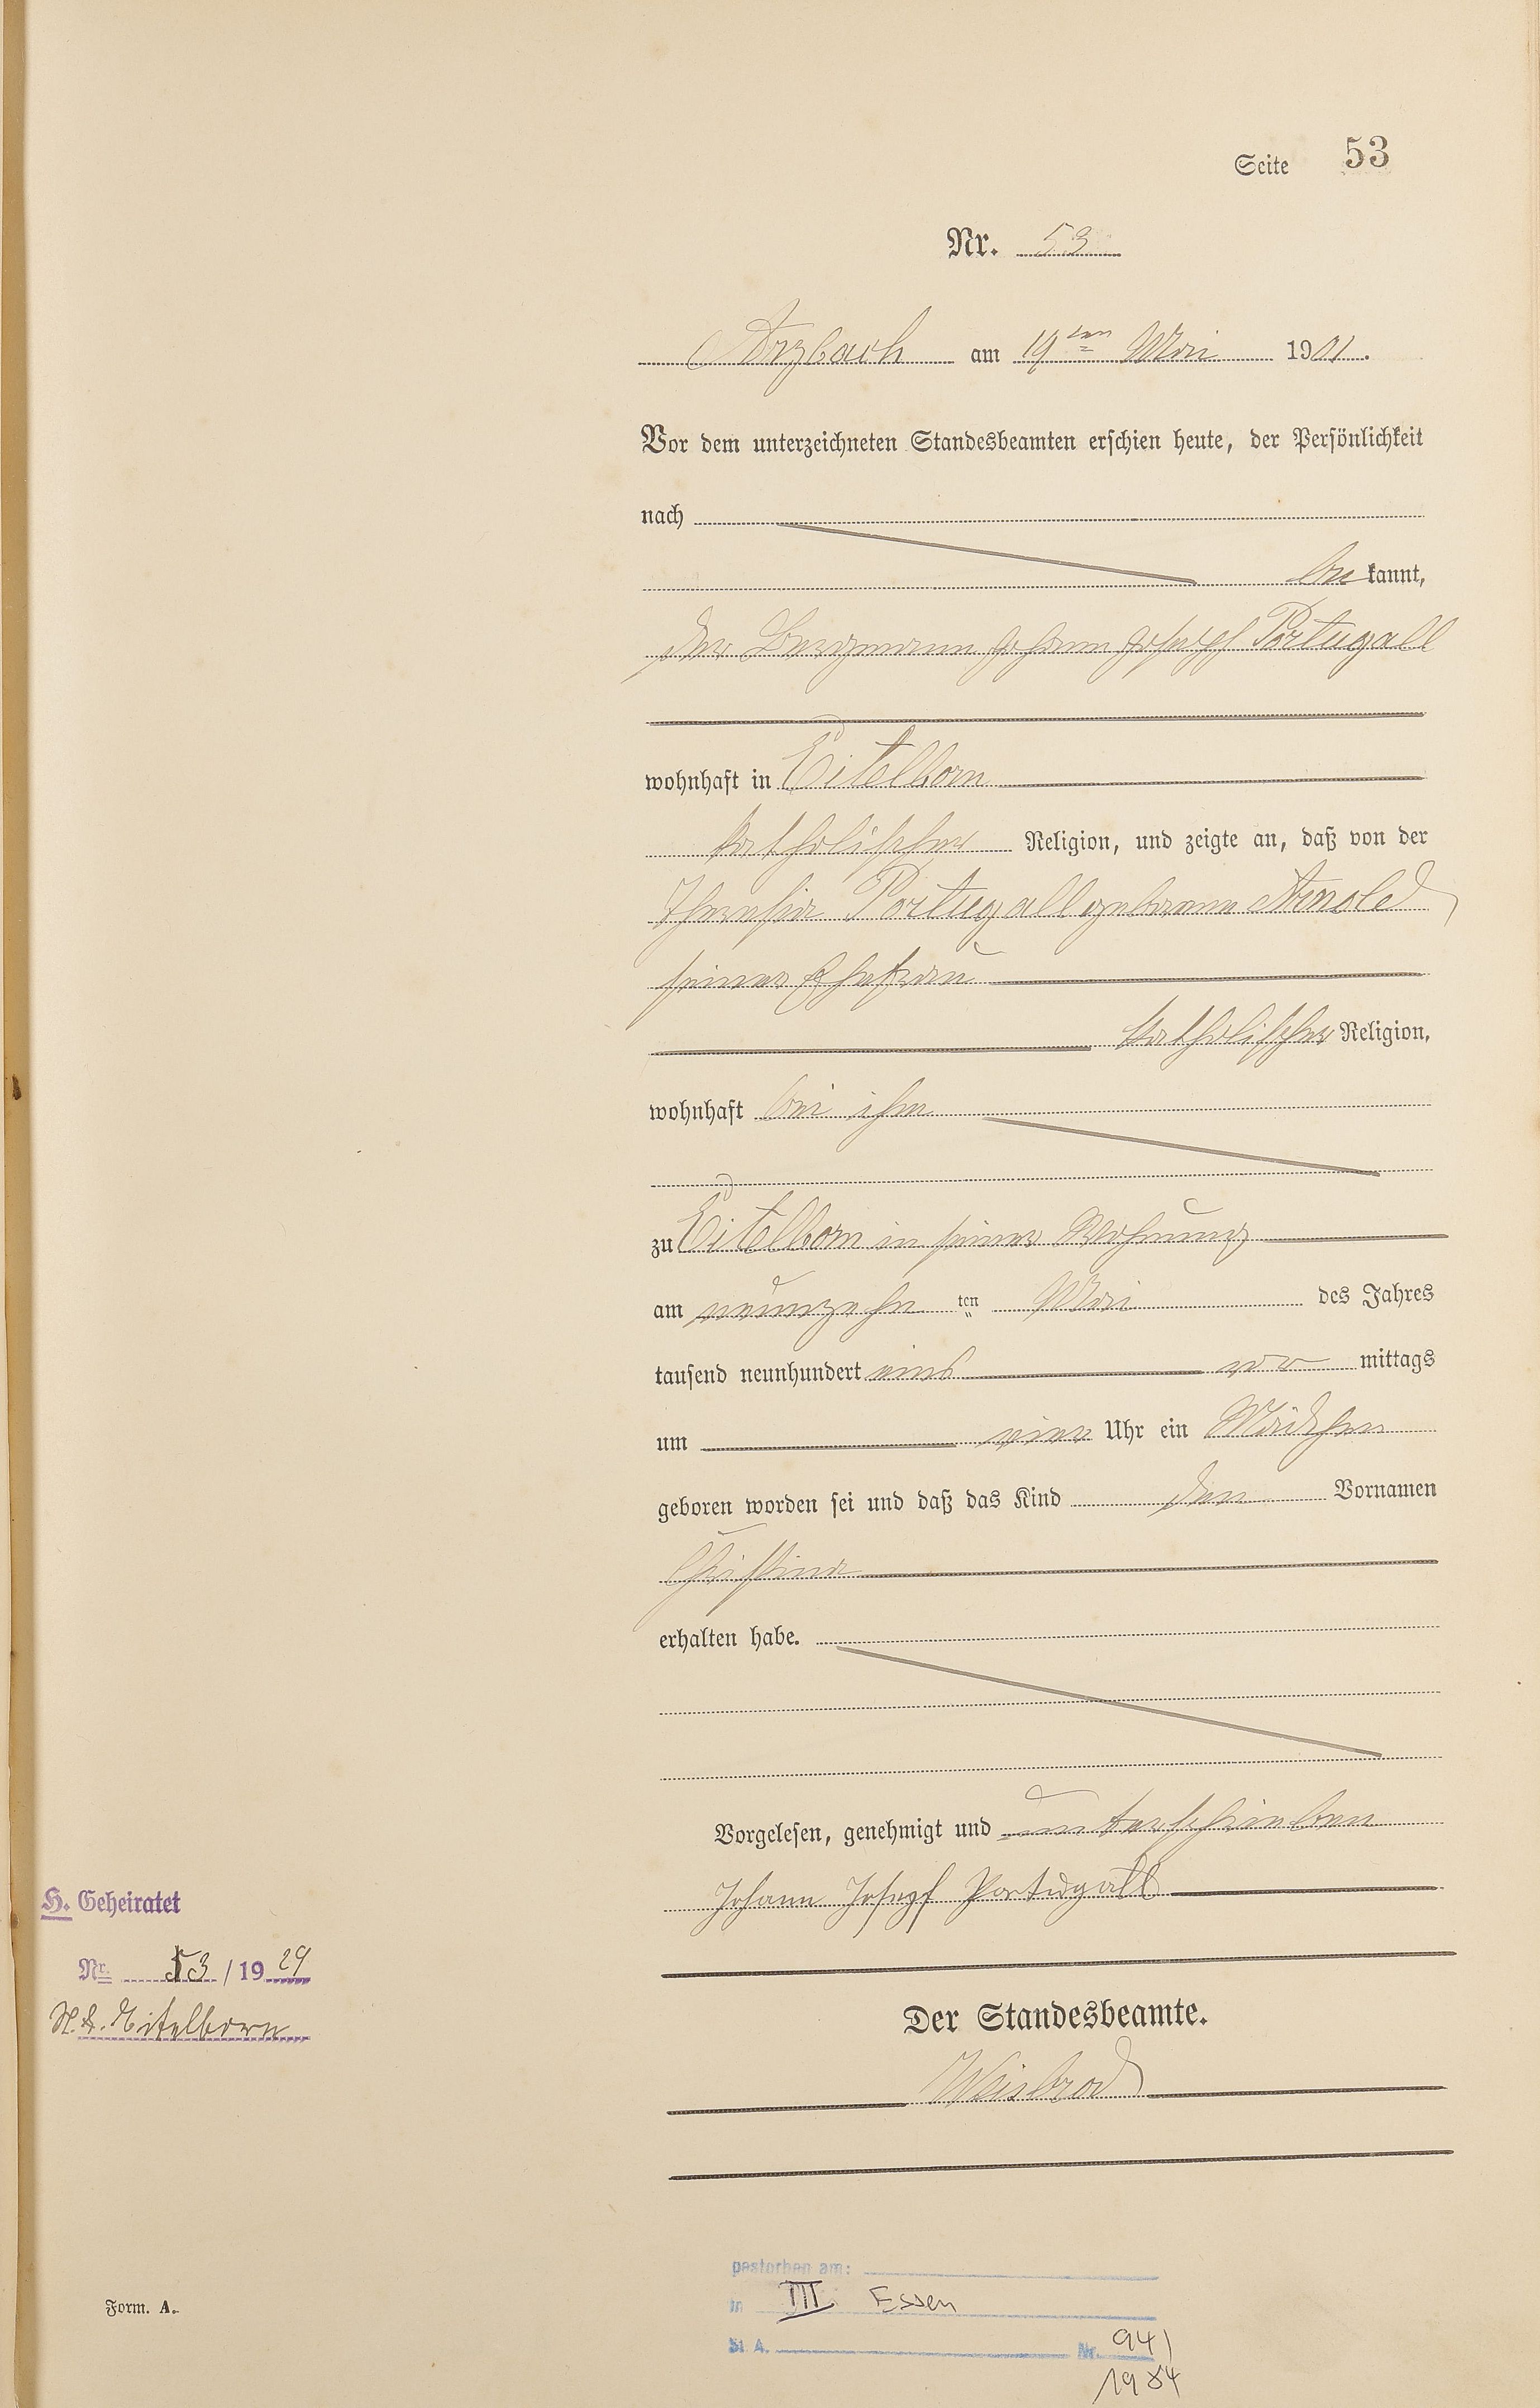 Seite 53
Nr. 53
Arzbach am 19ten Mai 1901.
Vor dem unterzeichneten Standesbeamten erschien heute, der Persönlichkeit
nach
bekannt,
der Bergmann Johann Joseph Portugall
wohnhaft in Eitelborn
katholischer Religion, und zeigte an, daß von der
Theresia Portugall geborene Arnold
seiner Ehefrau
katholischer Religion,
wohnhaft bei ihm
zu Eitelborn in seiner Wohnung
am neunzehn ten Mai des Jahres
tausend neunhundert eins vor mittags
um Uhr ein Mädchen
geboren worden sei und daß das Kind den Vornamen
Christina
erhalten habe.
Vorgelesen, genehmigt und unterschrieben
Johann Josepf Portugall
H. Geheiratet
Nr. 53 / 1929
St. A. Eitelborn
Der Standesbeamte.
Weisbrod
gestorben am:
in III Essen
St. A. Nr. 941
1984
Form. A.